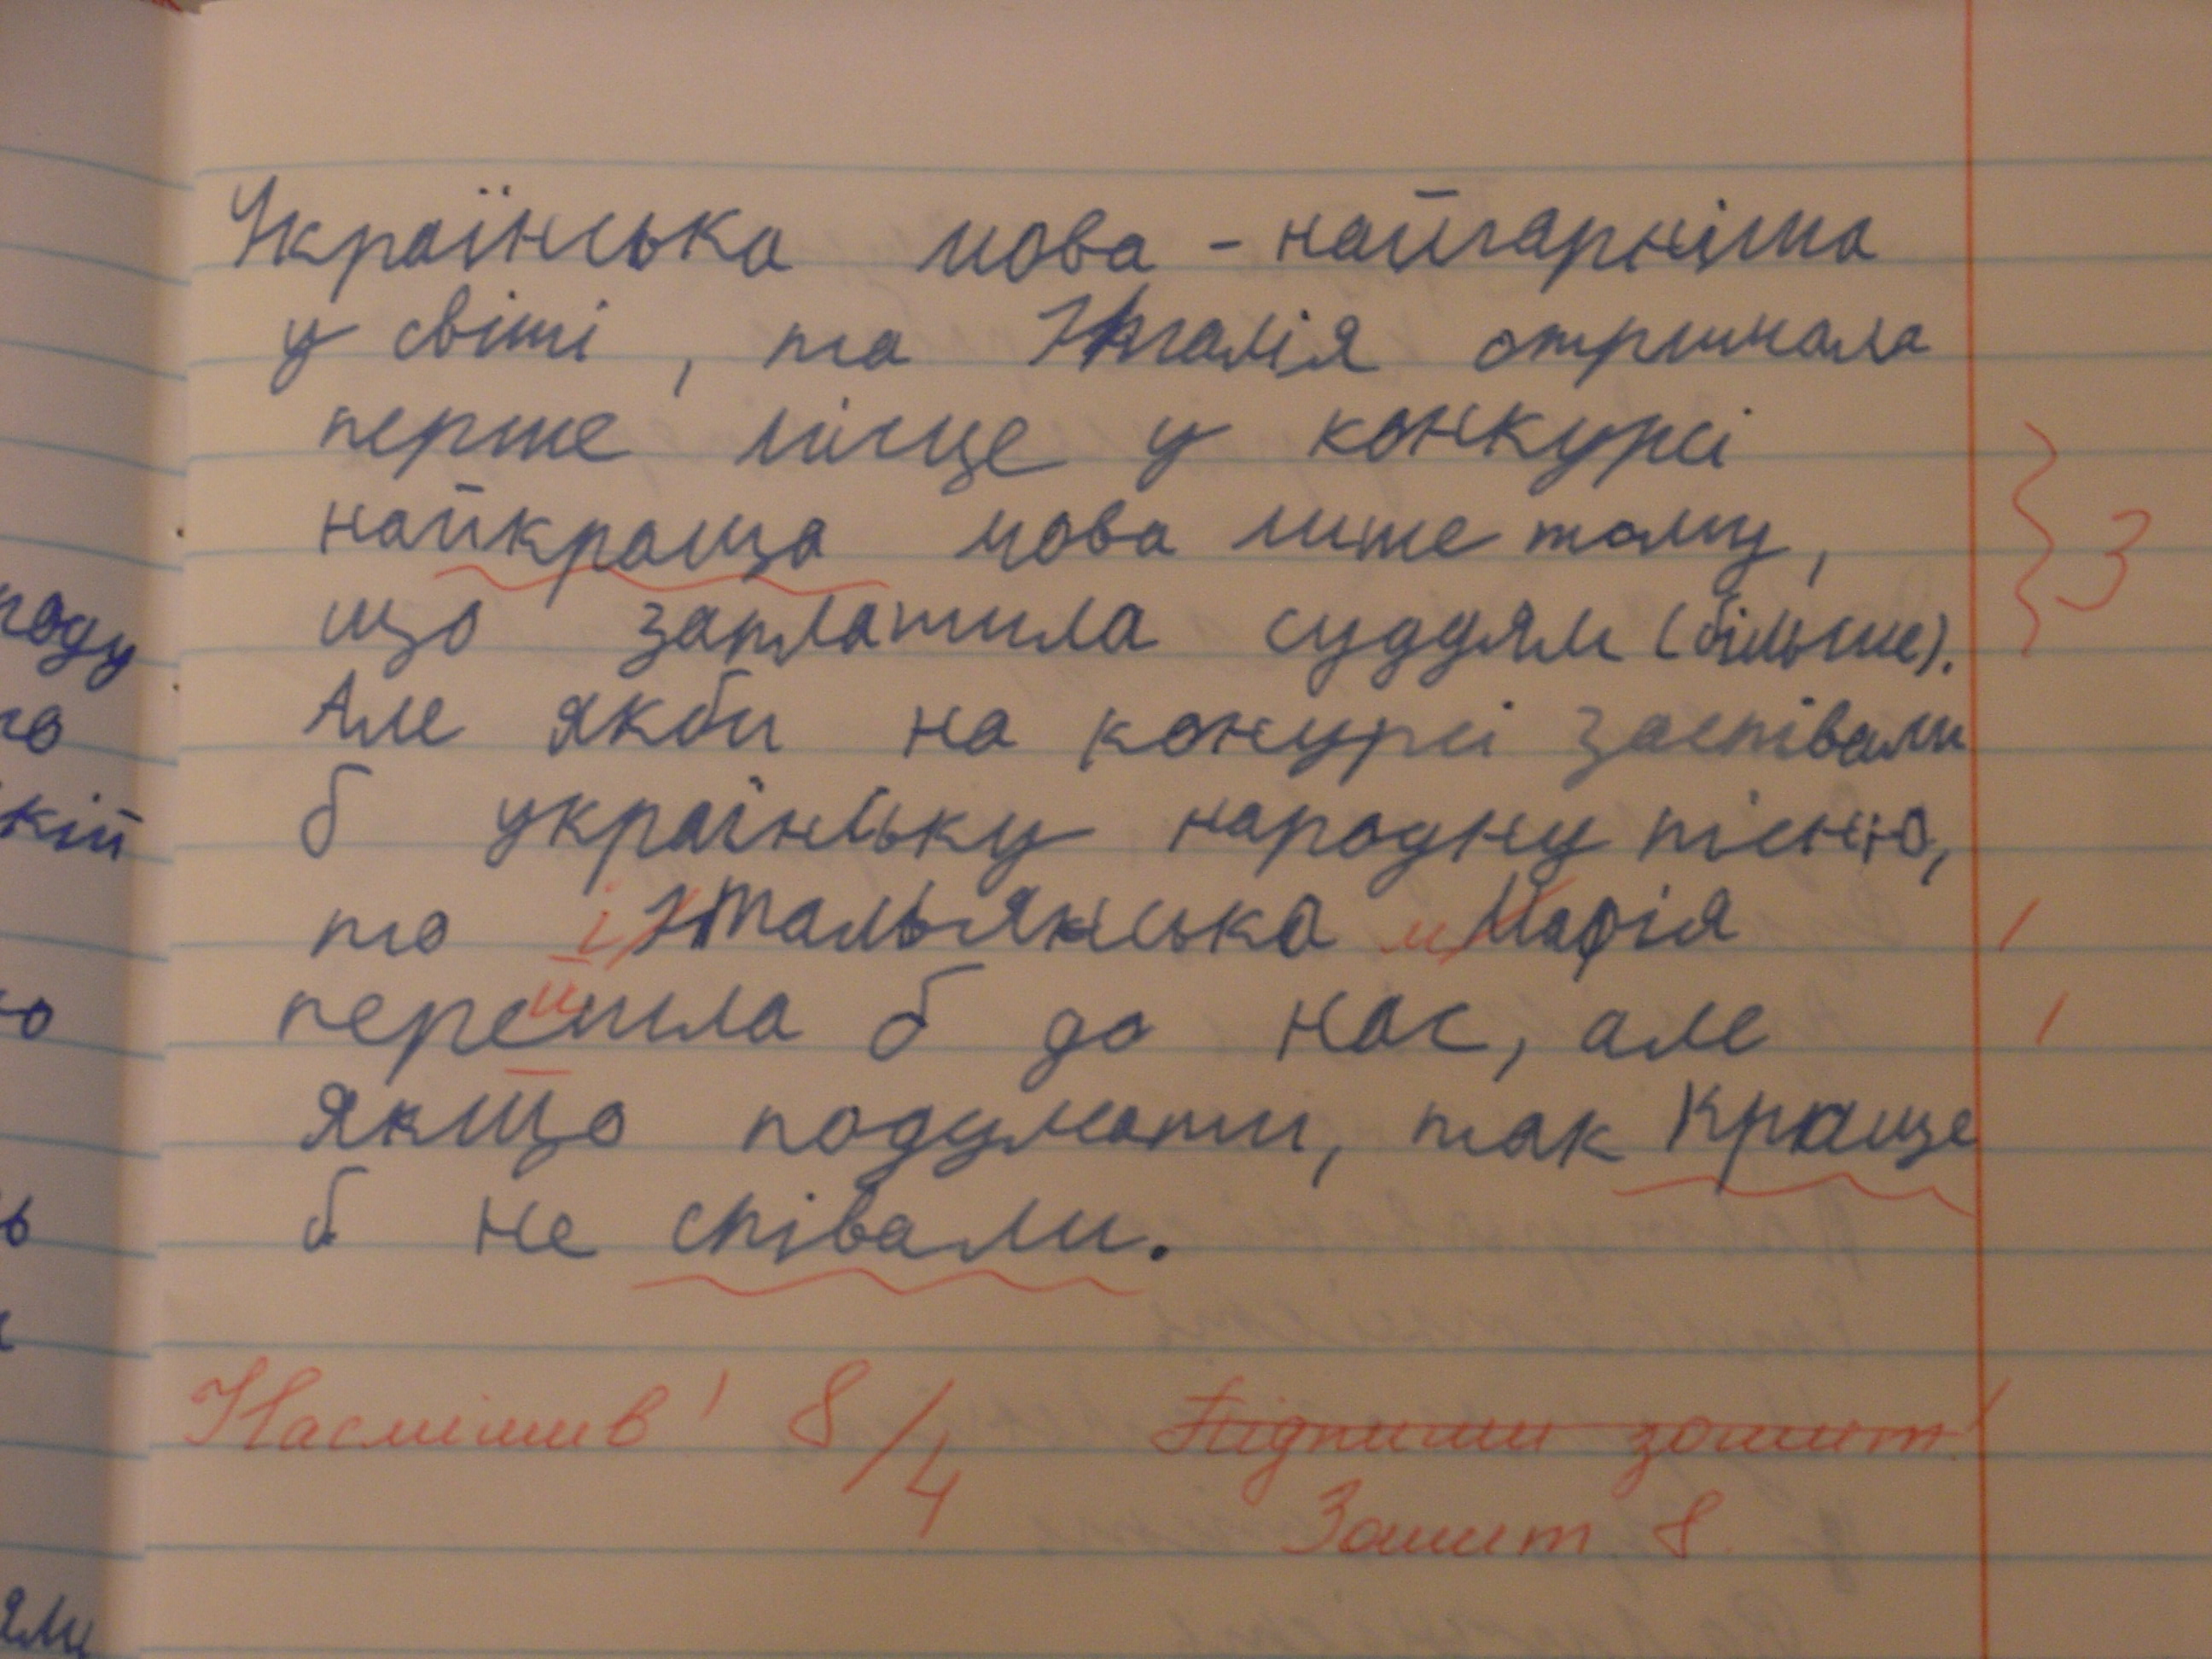 Українська мова - найгарніша
у світі, та Італія отримала
перше місце у конкурсі
найкраща мова лише тому,
що заплатила суддям (більше).
Але якби на конурсі заспівали
б українську народну пісню,
то і Італьянська м Мафія
й
перешла б до нас, але
якщо подумати, так краще
б не співали.
Насмішив! 8/4 Підпиши зошит!
Зошит 8.
3
году
го
кій
ю
ь
ями